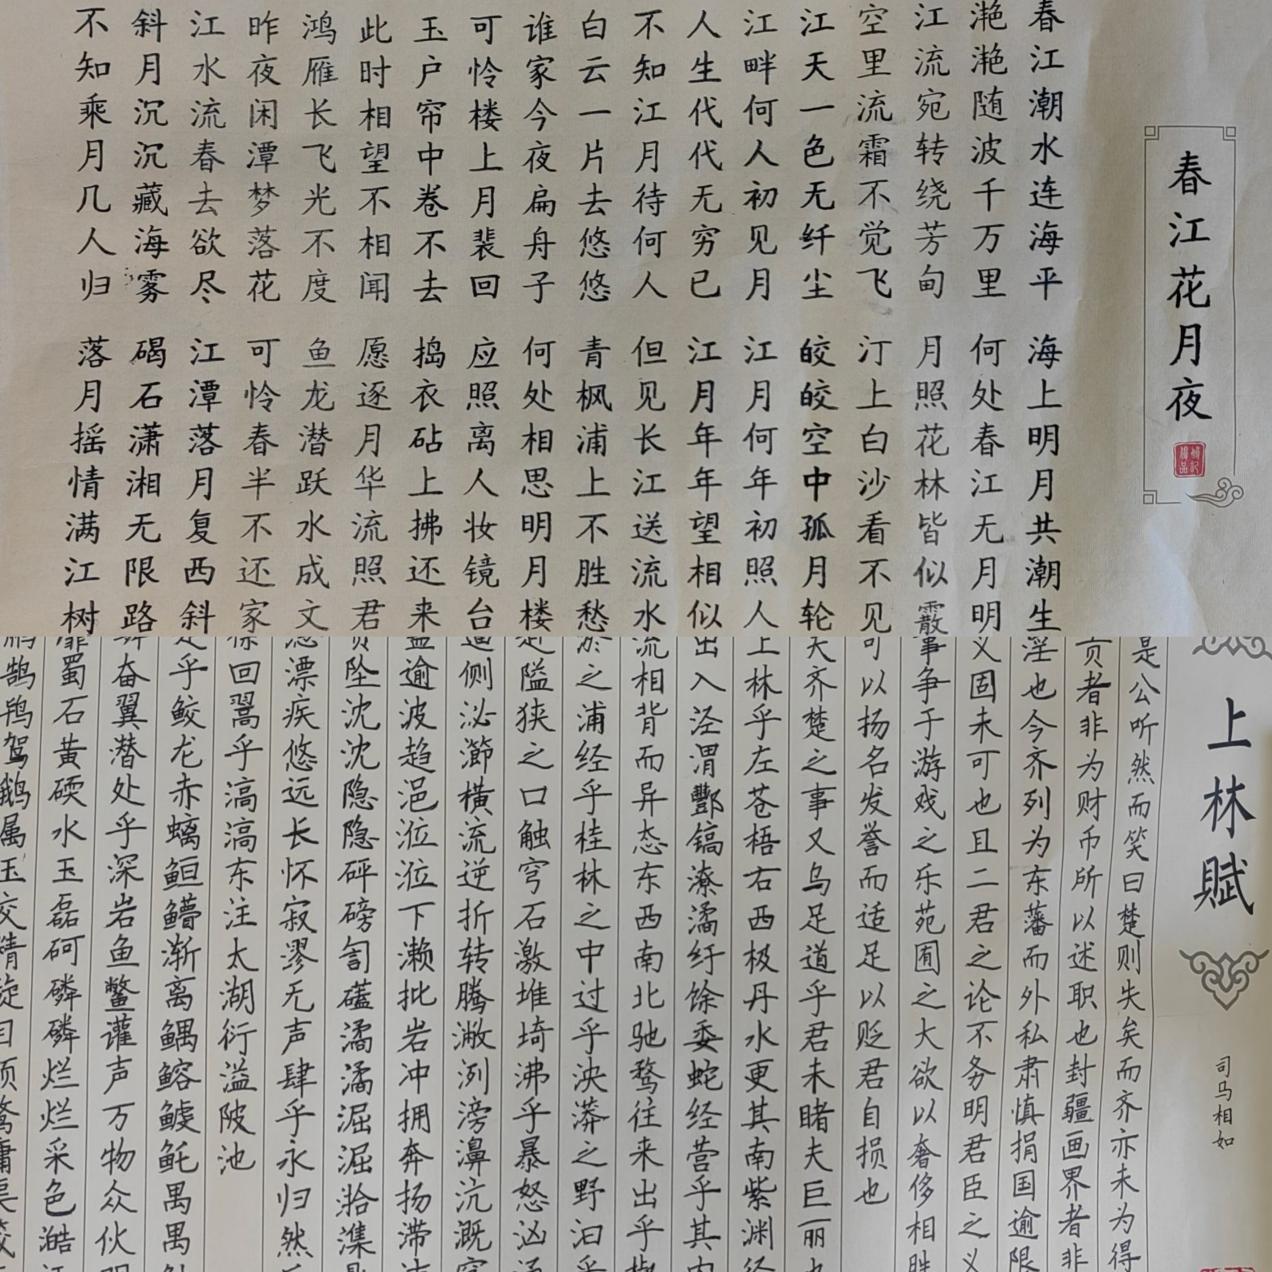 春江花月夜
春江潮水连海平 海上明月共潮生
滟滟随波千万里 何处春江无月明
江流宛转绕芳甸 月照花林皆似霰
空里流霜不觉飞 汀上白沙看不见
江天一色无纤尘 皎皎空中孤月轮
江畔何人初见月 江月何年初照人
人生代代无穷已 江月年年望相似
不知江月待何人 但见长江送流水
白云一片去悠悠 青枫浦上不胜愁
谁家今夜扁舟子 何处相思明月楼
可怜楼上月裴回 应照离人妆镜台
玉户帘中卷不去 捣衣砧上拂还来
此时相望不相闻 愿逐月华流照君
鸿雁长飞光不度 鱼龙潜跃水成文
昨夜闲潭梦落花 可怜春半不还家
江水流春去欲尽 江潭落月复西斜
斜月沉沉藏海雾 碣石潇湘无限路
不知乘月几人归 落月摇情满江树
上林賦
司马相如
是公听然而笑曰楚则失矣而齐亦未为得
贡者非为财币所以述职也封疆画界者非
淫也今齐列为东藩而外私肃慎捐国逾限
义固未可也且二君之论不务明君臣之义
事争于游戏之乐苑囿之大欲以奢侈相胜
可以扬名发誉而适足以贬君自损也
夫齐楚之事又乌足道乎君未睹夫巨丽也
上林乎左苍梧右西极丹水更其南紫渊径
出入泾渭酆镐潦潏纡馀委蛇经营乎其内
流相背而异态东西南北驰骛往来出乎
於之浦经乎桂林之中过乎泱漭之野汩乎
赴隘狭之口触穹石激堆埼沸乎暴怒汹
逼侧泌瀄横流逆折转腾潎洌滂濞沆溉
逾波趋浥涖涖下濑批岩冲拥奔扬滞
坠沈沈隐隐砰磅訇礚潏潏淈淈湁潗
急漂疾悠远长怀寂漻无声肆乎永归然
徐回翯乎滈滈东注太湖衍溢陂池
是乎鲛龙赤螭渐离禺禺
奋翼潜处乎深岩鱼鳖讙声万物众伙
靡蜀石黄碝水玉磊砢磷磷烂烂采色澔
鹄鸨驾鹅属玉交精旋目